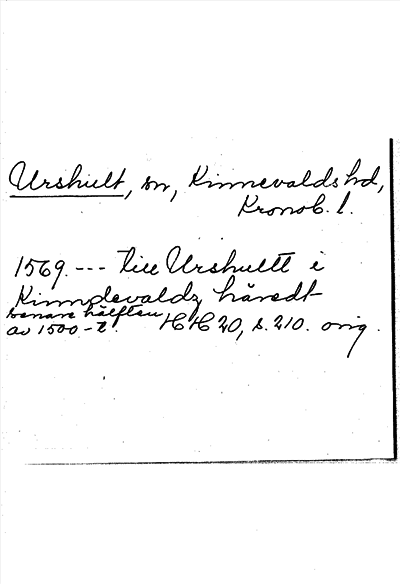 Urshult, sn, Kinnevalds hd,
Kronob. l.
1569. --- till Urshultt i
Kinndevaldz häredt
senare hälften
av 1500-t. HH 20, s. 210. orig.